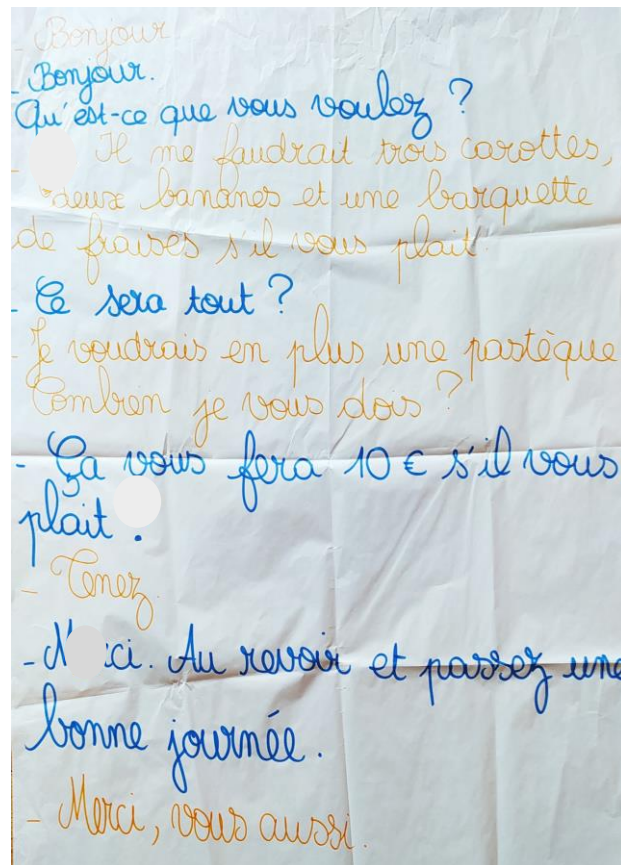 - Bonjour
- Bonjour.
Qu'est-ce que vous voulez ?
- Il me faudrait trois carottes,
deux bananes et une barquette
de fraises s'il vous plait.
- Ce sera tout ?
- Je voudrais en plus une pastèque
Combien je vous dois ?
- Ça vous fera 10 € s'il vous
plaît.
- Tenez.
- Au revoir et passez une
bonne journée.
- Merci, vous aussi.